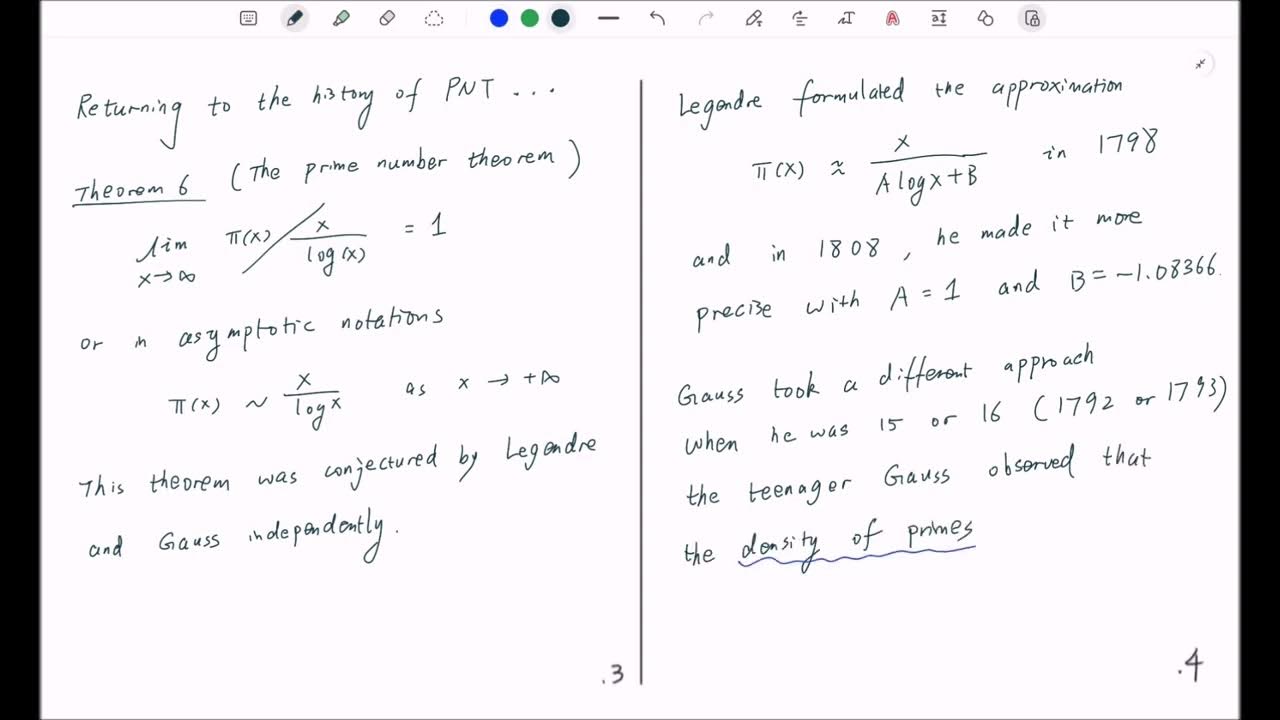 Returning to the history of PNT ...
Theorem 6 (The prime number theorem)
lim x→∞ π(x) / x/log(x) = 1
or in asymptotic notations
π(x) ~ x/log x as x → +∞
This theorem was conjectured by Legendre
and Gauss independently.
.3
Legendre formulated the approximation
π(x) ≈ x/(A log x + B) in 1798
and in 1808, he made it more
precise with A = 1 and B = -1.08366.
Gauss took a different approach
when he was 15 or 16 (1792 or 1793)
the teenager Gauss observed that
the density of primes
.4